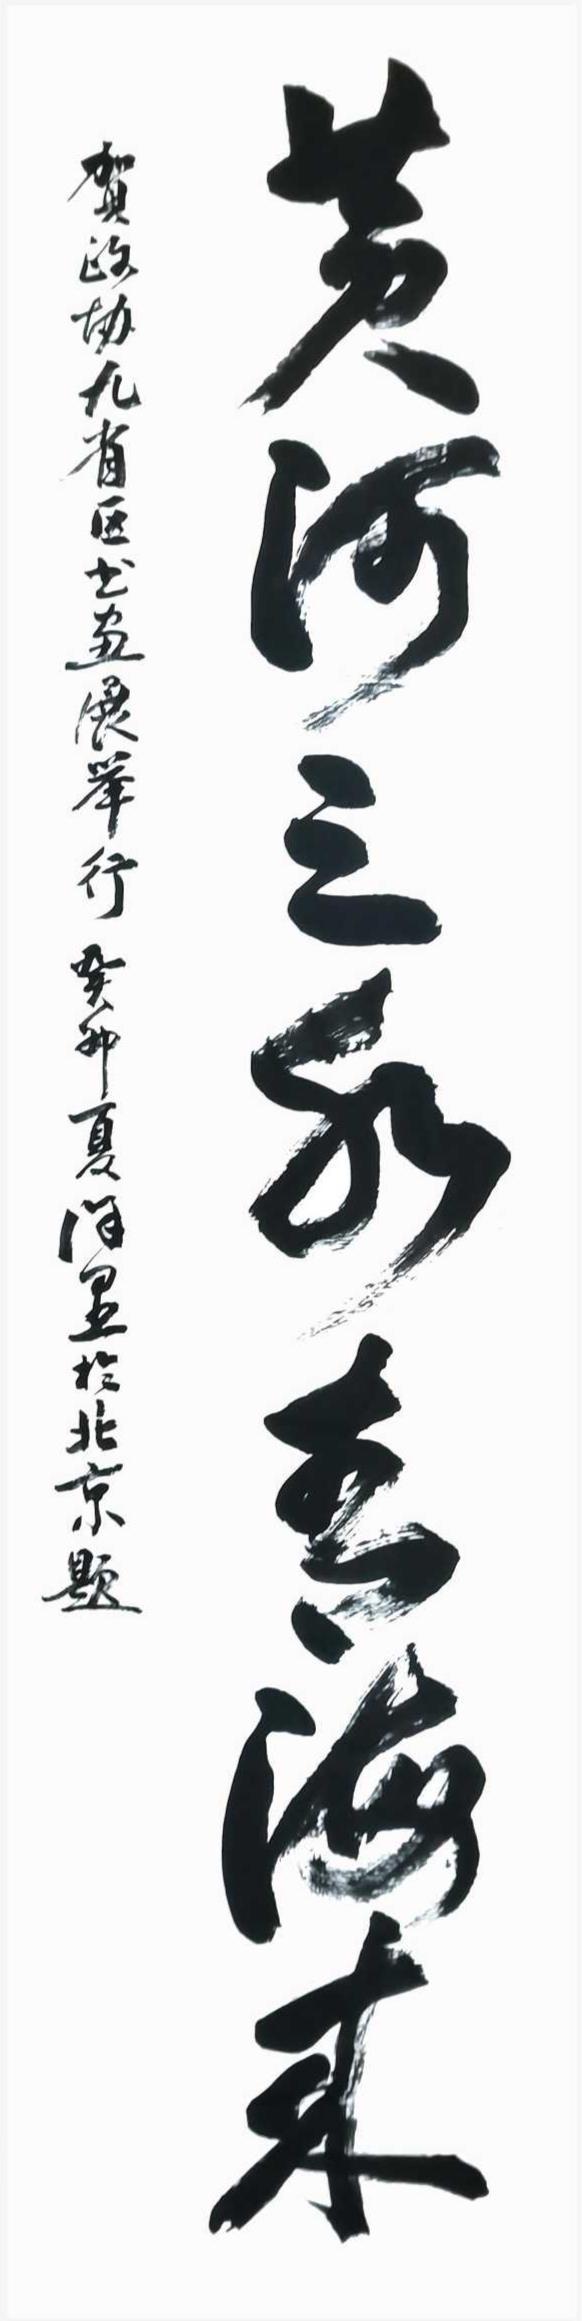 黄河之水青海来
贺政协九省区书画展举行 癸卯夏于北京题